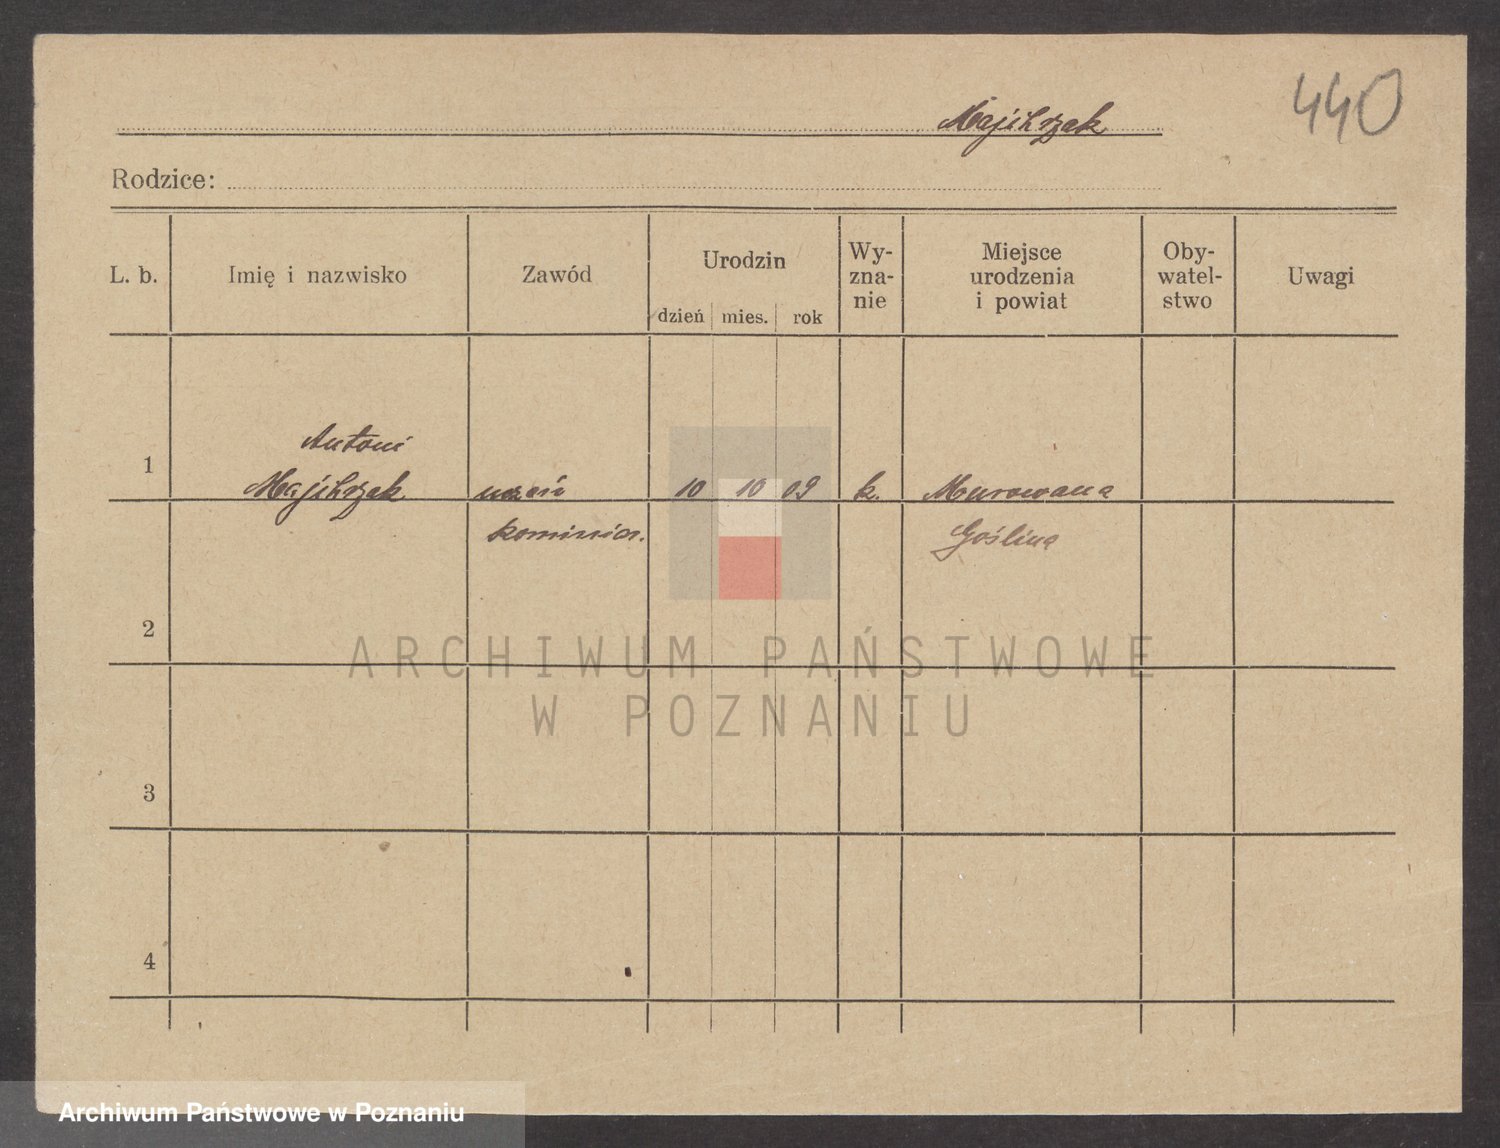 440
Majchrzak
Rodzice:
L. b.
Imię i nazwisko
Zawód
Urodzin
dzień
mies.
rok
Wy-
zna-
nie
Miejsce
urodzenia
i powiat
Oby-
watel-
stwo
Uwagi
1
Antoni
Majchrzak
uczeń
kominiar.
10
10
09
k.
Murowana
Goślina
2
3
4
ARCHIWUM PAŃSTWOWE
W POZNANIU
Archiwum Państwowe w Poznaniu